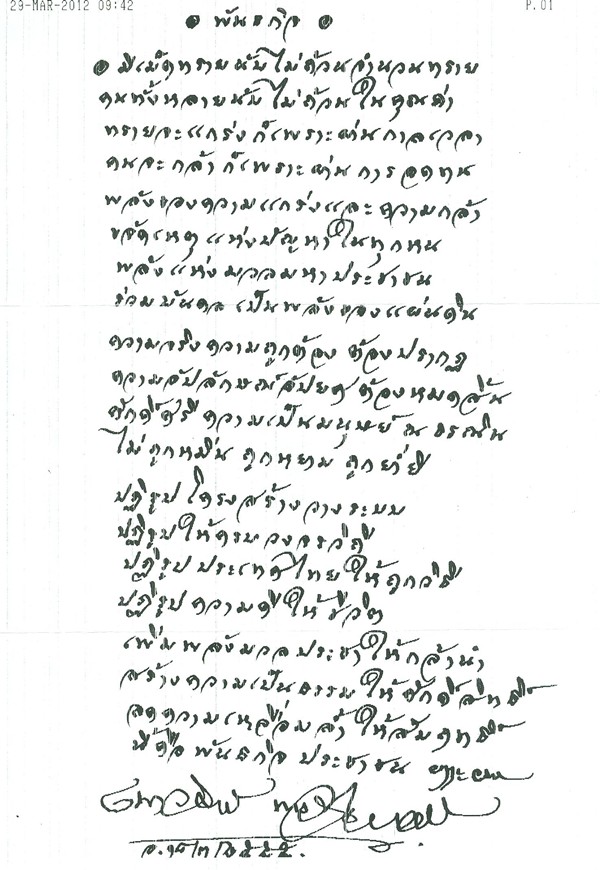 29-MAR-2012 09:42 P.01
๏ พันธกิจ ๏
๏ มีเม็ดทรายนับไม่ถ้วนจำนวนทราย
คนทั้งหลายนับไม่ถ้วนในคุณค่า
ทรายจะแกร่งก็เพราะผ่านกาลเวลา
คนจะกล้าก็เพราะผ่านการอดทน
พลังของความแกร่งและความกล้า
ขจัดเหตุแห่งปัญหาในทุกหน
พลังแห่งมวลมหาประชาชน
ร่วมบันดลเป็นพลังของแผ่นดิน
ความจริงความถูกต้อง ต้องปรากฏ
ความอัปลักษณ์อัปยศต้องหมดสิ้น
ศักดิ์ศรีความเป็นมนุษย์ ณ ธรณิน
ไม่ถูกหมิ่น ถูกหยาม ถูกย่ำยี
ปฏิรูปโครงสร้างวางระบบ
ปฏิรูปให้ครบวงจรวิถี
ปฏิรูปประเทศไทยให้ถูกวิธี
ปฏิรูปความดีให้ชีวิต
เพิ่มพลังมวลประชาให้กล้านำ
สร้างความเป็นธรรมให้ศักดิ์สิทธิ์
ลดความเหลื่อมล้ำให้สัมฤทธิ์
นี่คือพันธกิจประชาชน